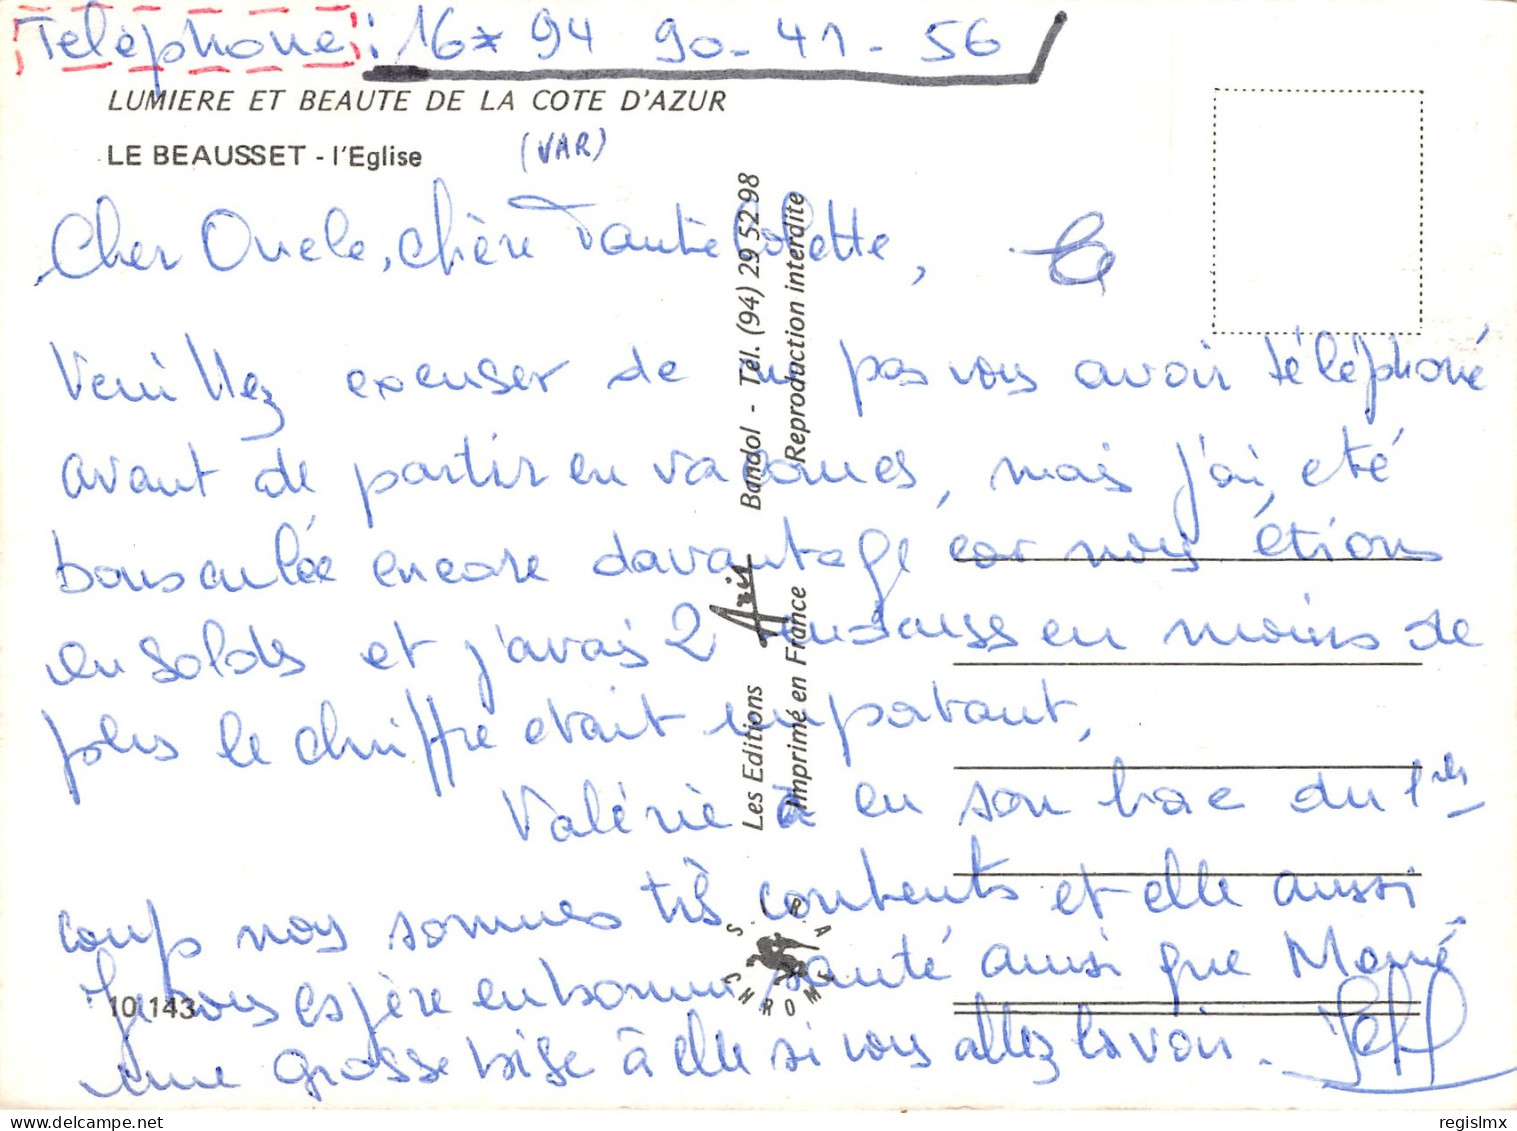 Téléphone : 16* 94 90-41-56
LUMIERE ET BEAUTE DE LA COTE D'AZUR
LE BEAUSSET - l'Eglise (VAR)
Cher Oncle, chère Tante Colette, le
Veuillez excuser de ne pas vous avoir téléphoné
avant de partir en vacances, mais j'ai été
bousculée encore davantage car nous étions
en soldes et j'avais 2 vendeuses en moins de
plus le chiffre était important,
Valérie a eu son bac du 1er
coup nous sommes très contents et elle aussi
Je vous espère en bonne santé ainsi que Mémé
une grosse bise à elle si vous allez la voir.
10 143
Les Editions Aris Bandol - Tél. (94) 29 52 98
Imprimé en France Reproduction interdite
CHROME
regislmx